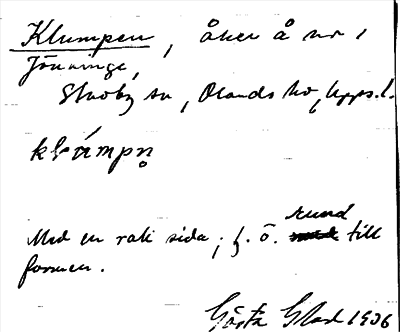 Klumpen, åker å nr 1
Jönninge,
Skoby sn, Olands hd, Upps. l.
klúmpn̥
Med en rak sida; f. ö. rund till
formen.
Gösta Glad 1936